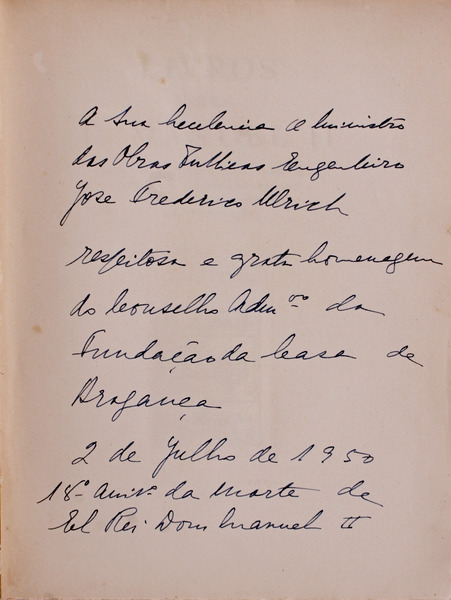 A Sua Excelencia O Ministro
das Obras Publicas Engenheiro
Jose Frederico Ulrich
respeitosa e grata homenagem
do Conselho Admº da
Fundação da Casa de
Bragança
2 de Julho de 1950
18º anivº da morte de
El Rei Dom Manuel II